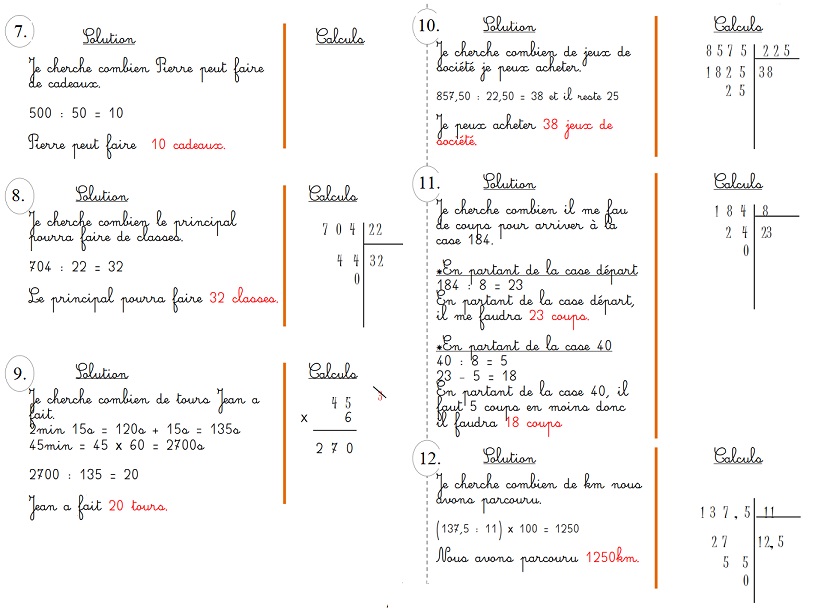 7.
Solution
Calculs
Je cherche combien Pierre peut faire
de cadeaux.
500 : 50 = 10
Pierre peut faire 10 cadeaux.
8.
Solution
Calculs
Je cherche combien le principal
pourra faire de classes.
704 : 22 = 32
Le principal pourra faire 32 classes.
7 0 4 22
4 4 32
0
9.
Solution
Calculs
Je cherche combien de tours Jean a
fait.
2min 15s = 120s + 15s = 135s
45min = 45 x 60 = 2700s
2700 : 135 = 20
Jean a fait 20 tours.
3
4 5
x 6
2 7 0
10.
Solution
Calculs
Je cherche combien de jeux de
société je peux acheter.
857,50 : 22,50 = 38 et il reste 25
Je peux acheter 38 jeux de
société.
8 5 7 5 2 2 5
1 8 2 5 38
2 5
11.
Solution
Calculs
Je cherche combien il me fau
de coups pour arriver à la
case 184.
*En partant de la case départ
184 : 8 = 23
En partant de la case départ,
il me faudra 23 coups.
*En partant de la case 40
40 : 8 = 5
23 - 5 = 18
En partant de la case 40, il
faut 5 coups en moins donc
il faudra 18 coups
1 8 4 8
2 4 23
0
12.
Solution
Calculs
Je cherche combien de km nous
avons parcouru.
(137,5 : 11) x 100 = 1250
Nous avons parcouru 1250km.
1 3 7 , 5 11
2 7 12,5
5 5
0